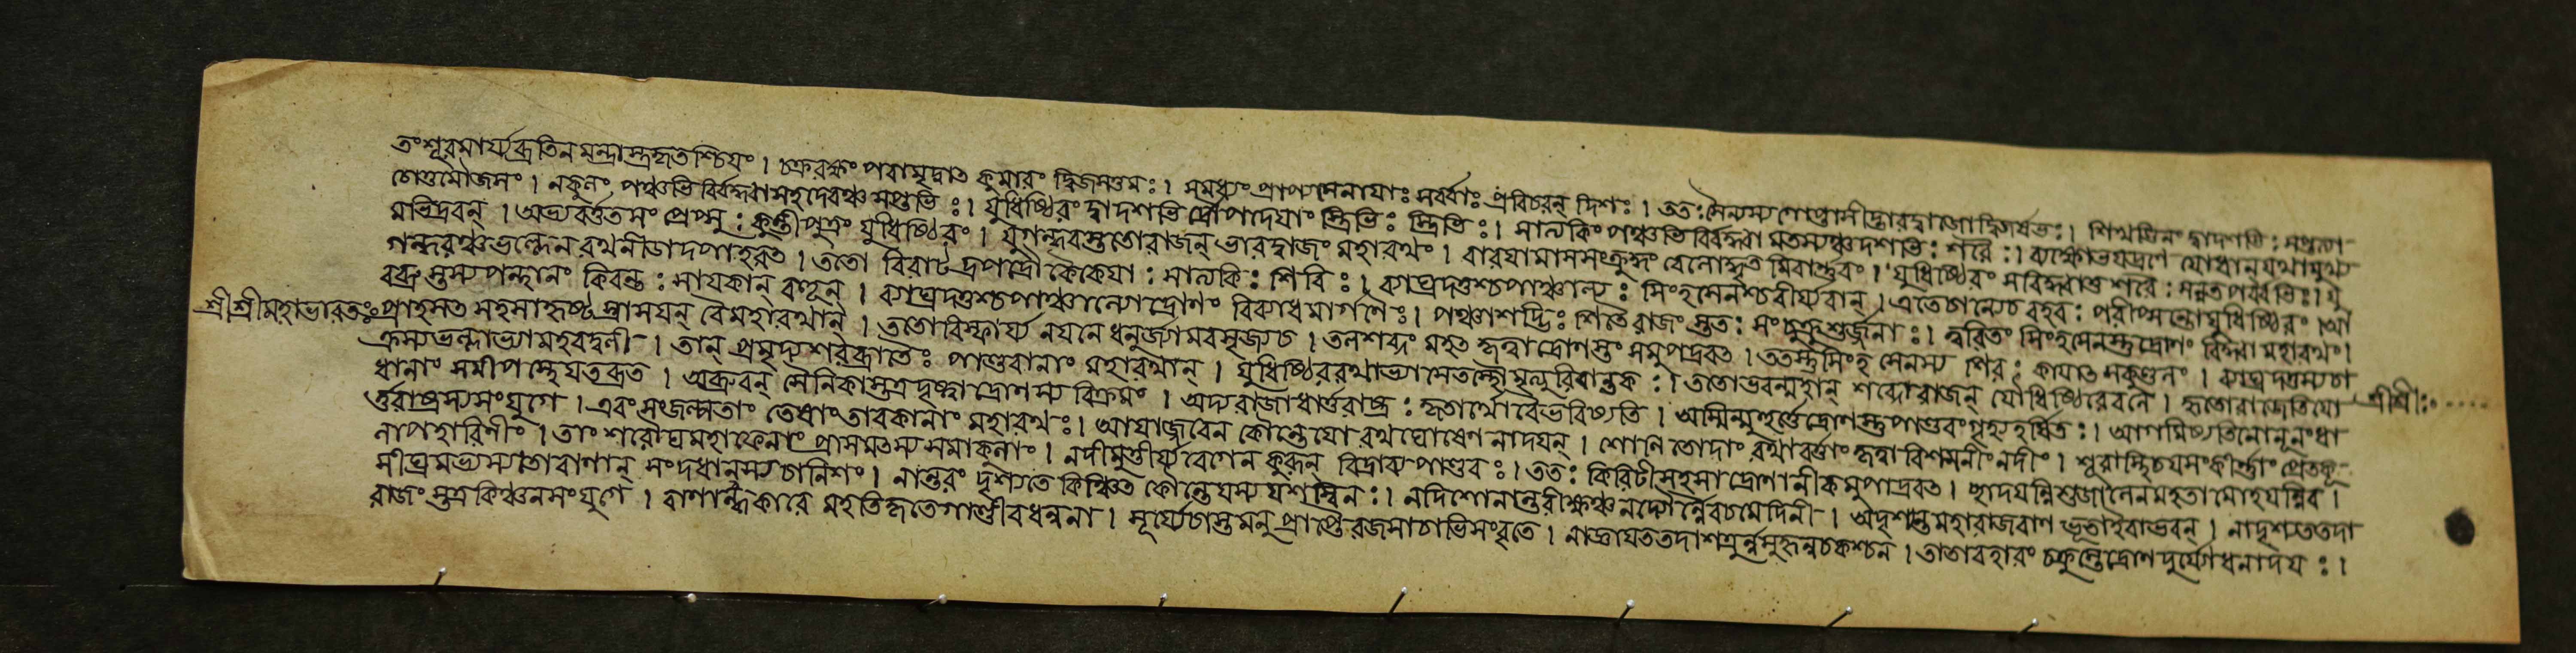 তংশূরমার্য্যব্রতিনমন্ত্রাস্ত্রকৃতশ্চিয়ং । চক্ররক্ষং পরামৃদ্বাত কুমারং দ্বিজসত্তমঃ । সমধ্যং প্রাপ্যসেনায়াঃ সর্ব্বাঃ প্রবিচরন্ দিশঃ । তত: সৈন্যস্য গোপ্তাসীদ্ভারদ্বাজো দ্বিজর্ষভঃ । শিখণ্ডিনং দ্বাদশভি:
চোত্তমৌজসং । নকুলং পঞ্চভি র্বিদ্ধ্বাসহদেবঞ্চ সপ্তভি ঃ । যুধিষ্ঠিরং দ্বাদশভি র্দ্রৌপদেয়াং স্ত্রিভি: স্ত্রিভি: । সাত্যকিং পঞ্চভি র্বিদ্ধ্বা মৎস্যঞ্চ দশভি: শরৈ: । ব্যক্ষোভযদ্রণে যোধান্ যথামুখ্য
মভিদ্রবন্ । অভ্যবর্ত্তত সং প্রেপ্সু: কুন্তীপুত্রং যুধিষ্ঠিরং । যুগন্ধরস্ততোরাজন্ ভারদ্বাজং মহারথং । বারয়ামাসসংক্রুদ্ধং বেনোদ্ধূত মিবার্ণ্ণবং । যুধিষ্ঠিরং সবিদ্ধ্বাতু শরৈ: সন্নতপর্ব্বভিঃ । যু
গন্ধরঞ্চভল্লেন রথনীডাদপাহরত । ততো বিরাটদ্রুপদৌ কৈকেয়া: সাত্যকি: শিবি: । ব্যাঘ্রদত্তশ্চপাঞ্চাল্য: সিংহসেনশ্চবীর্য্যবান্ । এতেচান্যেচ বহব: পরীপ্সন্তোযুধিষ্ঠিরং । আ
বব্রু স্তস্যপন্থানং কিরন্ত: সায়কান্ বহূন্ । ব্যাঘ্রদত্তশ্চপাঞ্চাল্যোদ্রোণং বিব্যাধমার্গণৈঃ । পঞ্চাশদ্ভিঃ শিতৈ রাজং স্তত: সংচুক্রুশুর্জ্জনাঃ । ত্বরিতং সিংহসেনস্তু দ্রোণং বিদ্ধ্বা মহারথং ।
শ্রীশ্রীমহাভারতঃ প্রাহসত সহসাহৃষ্ট স্ত্রাসয়ন্ বৈমহারথান্ । ততোবিস্ফার্য্য নয়নে ধনুর্জ্যামবসৃজ্যচ । তলশব্দং মহত কৃত্বাদ্রোণস্তং সমুপাদ্রবত । ততস্তুসিংহ সেনস্য শির: কায়াত সকুণ্ডলং । ব্যাঘ্রদত্তস্যচা
ক্রম্যভল্লাভ্যামহরদ্বলী । তান্ প্রমৃদ্যশরব্রাতৈঃ পাণ্ডবানাং মহারথান্ । যুধিষ্ঠিররথাভ্যাসেতস্থৌ মৃত্যুরিবান্তক: । ততোভবন্মহান্ শব্দোরাজন্ যৌধিষ্ঠিরেবলে । হৃতোরাজেতিযো শ্রীশ্রীঃ
ধানাং সমীপস্থেযতব্রত । অব্রুবন্ সৈনিকাস্তত্রদৃষ্ট্বাদ্রোণস্য বিক্রমং । অদ্যরাজাধার্ত্তরাষ্ট্র: কৃতার্থোবৈভবিষ্যতি । অস্মিন্মুহূর্ত্তেদ্রোণস্তুপাণ্ডবংগৃহ্যহর্ষিত: । আগমিষ্যতিনোনূনংধা
র্ত্তরাষ্ট্রস্যসংযুগে । এবংসংজল্পতাং তেষাংতাবকানাং মহারথঃ । আয়াজ্জবেন কৌন্তেয়ো রথঘোষেণ নাদয়ন্ । শোণিতোদাং রথাবর্ত্তাং কৃত্বাবিশসনীংনদীং । শূরাস্থিচয়সংকীর্ণ্ণাং প্রেতকূ
লাপহারিণীং । তাং শরৌঘমহাফেনাং প্রাসমৎস্যসমাকুলাং । নদীমুত্তীর্য্যবেগেন কুরূন্ বিদ্রাব্যপাণ্ডবঃ । তত: কিরিটীসহসাদ্রোণানীকমুপাদ্রবত । ছাদয়ন্নিশুজালেনমহতামোহয়ন্নিব ।
শীঘ্রমভ্যস্যতোবাণান্ সংদধানস্যচানিশং । নান্তরং দৃশ্যতে কিঞ্চিত কৌন্তেয়স্য যশস্বিন: । নদিশোনান্তরীক্ষঞ্চনদ্যৌর্ন্নৈবচমেদিনী । অদৃশ্যন্ত মহারাজবাণ ভূতাইবাভবন্ । নাদৃশ্যততদা
রাজং স্তত্রকিঞ্চনসংযুগে । বাণান্ধকারে মহতিকৃতেগাণ্ডীবধন্বনা । সূর্য্যেচাস্তমনুপ্রাপ্তে রজসাচাভিসংবৃতে । নাজ্ঞায়ততদাশত্রুর্ন্নসুহৃন্নচকশ্চন । ততোবহারং চক্রুস্তেদ্রোণদুর্য্যোধনাদয়ঃ ।